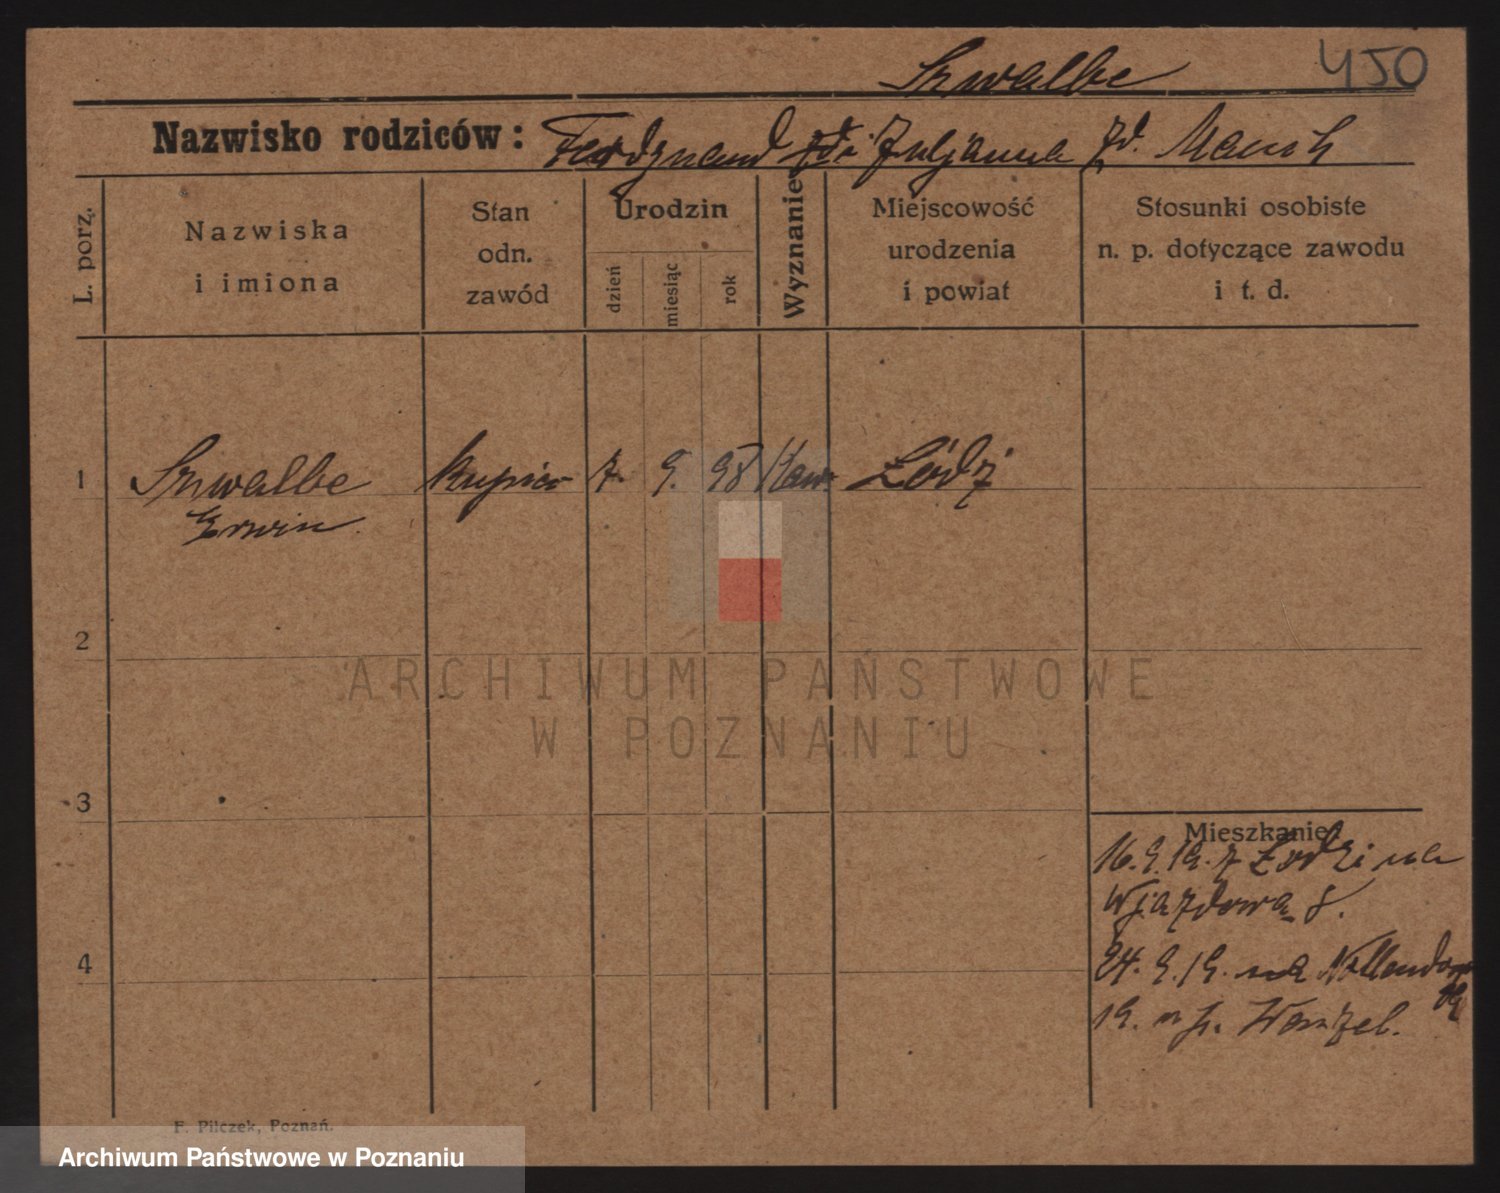 Szwalbe 450
Nazwisko rodziców: Ferdynand i Juljanna zd.
L. porz.
Nazwiska
i imiona
Stan
odn.
zawód
Urodzin
dzień
miesiąc
rok
Wyznanie
Miejscowość
urodzenia
i powiat
Stosunki osobiste
n. p. dotyczące zawodu
i t. d.
1 Szwalbe kupiec 7. 9. 98 Łódź
Erwin
2
ARCHIWUM PAŃSTWOWE
W POZNANIU
3
Mieszkanie:
16.9.19. z Łodzi na
Wjazdową 8.
4
24.9.19. na
19. Wenzel.
F. Pilczek, Poznań.
Archiwum Państwowe w Poznaniu